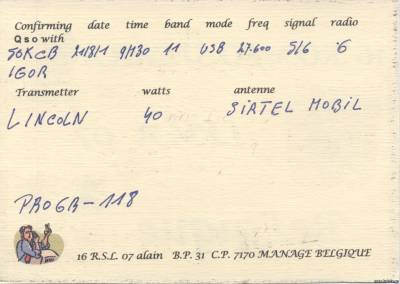 Confirming date time band mode freq signal radio
Qso with
50KCB 21/8/1 9/130 11 USB 27.600 5/6 6
IGOR
Transmetter watts antenne
LINCOLN 40 SIRTEL MOBIL
PROGR-118
16 R.S.L. 07 alain B.P. 31 C.P. 7170 MANAGE BELGIQUE